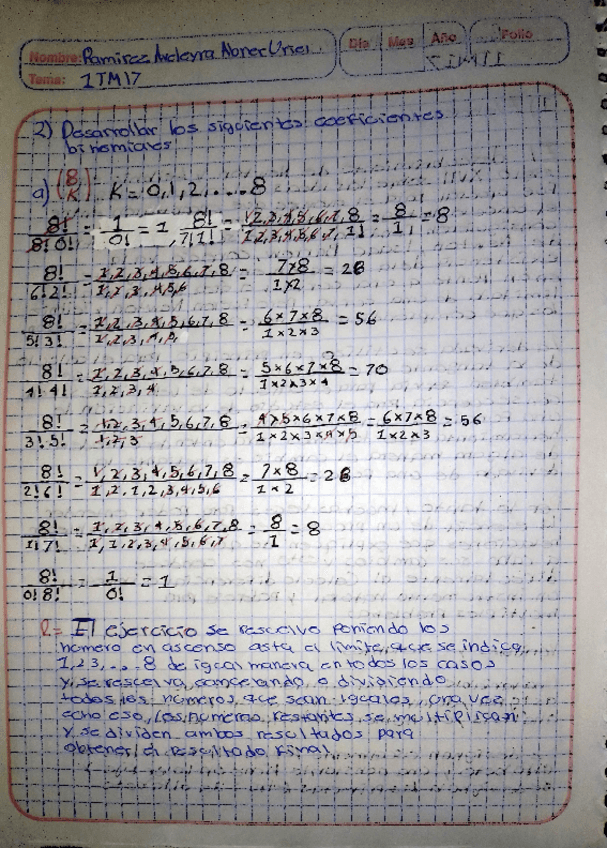 Nombre: Ramirez Aleleyra Abner Uriel. Dia Mes Año Folio
Tema: 1IM17
2) Desarrollar los siguientes coeficientes
binomiales
a) (8/K) K = 0,1,2, ....8
8!/8!0! = 1/0! = 1, 8!/7!1! = 1,2,3,4,5,6,7,8/1,2,3,4,5,6,7,1! = 8/1, = 8
8!/6!2! = 1,2,3,4,5,6,7,8/1,2,3,4,5,6 = 7×8/1×2 = 28
8!/5!3! = 1,2,3,4,5,6,7,8/1,2,3,4,5, = 6×7×8/1×2×3 = 56
8!/4!4! = 1,2,3,4,5,6,7,8/1,2,3,4 = 5×6×7×8/1×2×3×4 = 70
8!/3!5! = 1,2,3,4,5,6,7,8/1,2,3 = 4×5×6×7×8/1×2×3×4×5 = 6×7×8/1×2×3 = 56
8!/2!6! = 1,2,3,4,5,6,7,8/1,2,1,2,3,4,5,6 = 7×8/1×2 = 28
8!/1!7! = 1,2,3,4,5,6,7,8/1,1,2,3,4,5,6,7 = 8/1 = 8
8!/0!8! = 1/0! = 1
R= El ejercicio se resuelve poniendo los
numero en ascenso asta el limite que se indica
1,2,3,...8 de igual manera en todos los casos
y se resuelva cancelando o dividiendo
todos los numeros que sean iguales, una vez
echo eso, los numeros restantes se multiplican
y se dividen ambos resultados para
obtener el resultado final